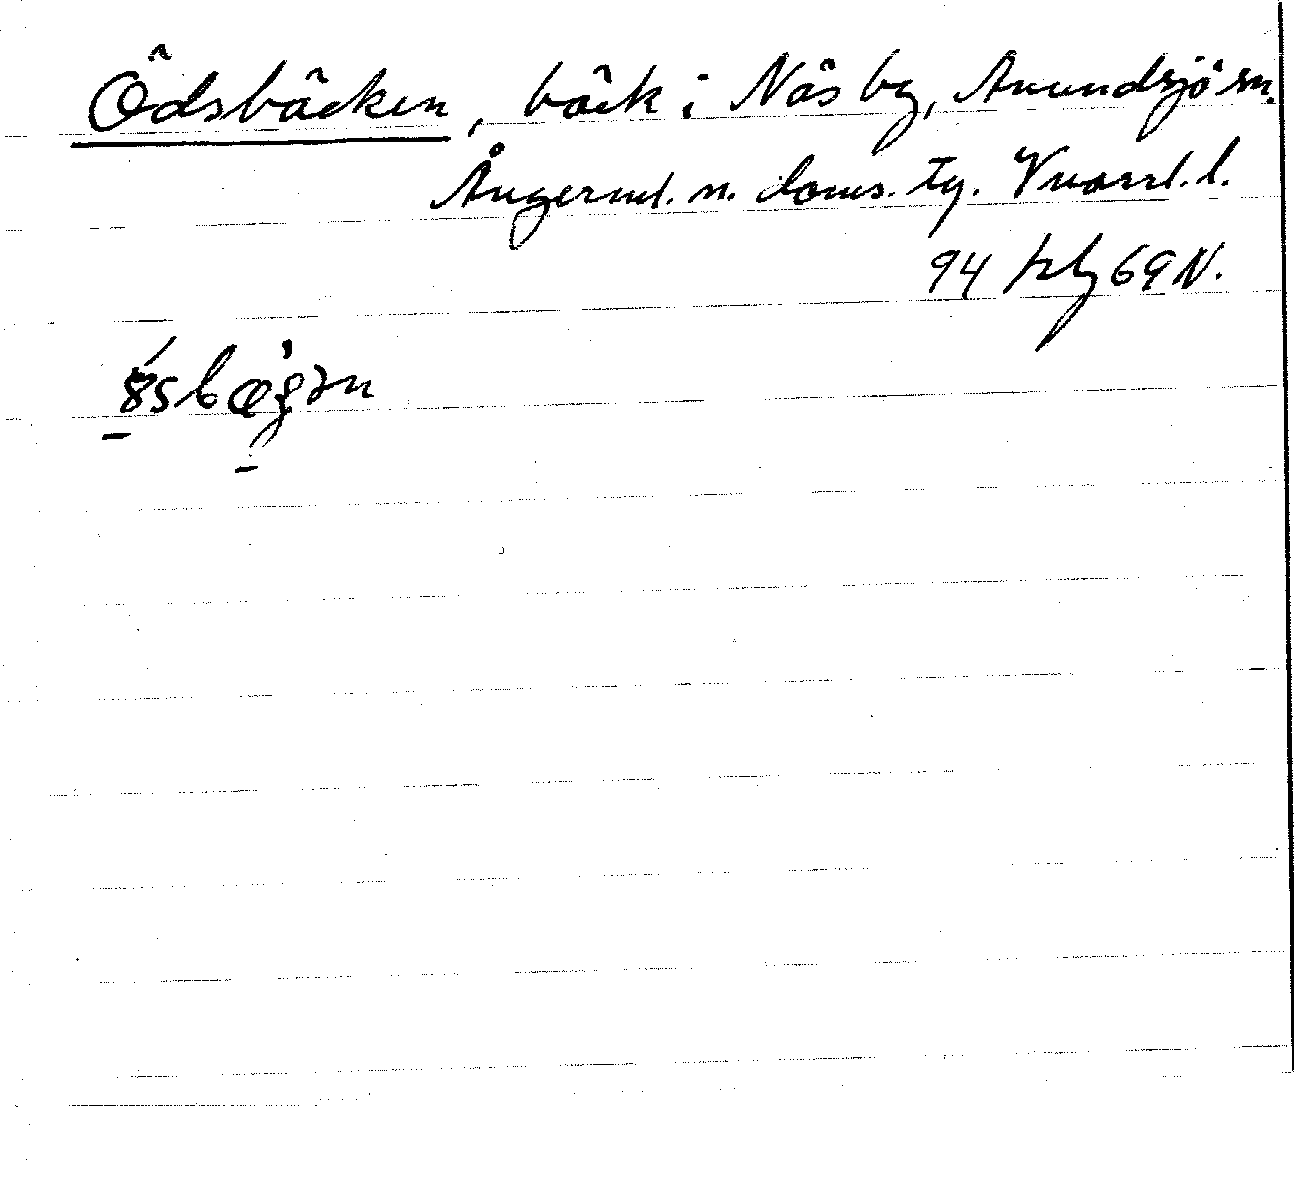 Ödsbäcken, bäck i Näs by, Anundsjö sn.
Ångerml. n. doms. tg. Vnorrl. l.
94 hly 69 N.